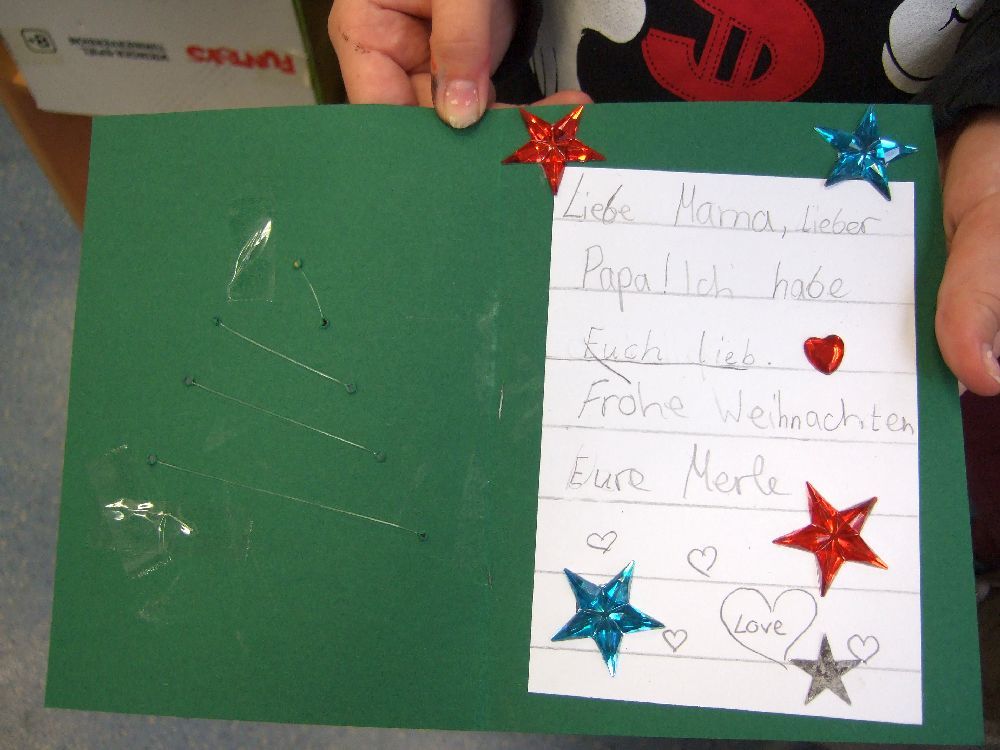 Liebe Mama, Lieber
Papa! Ich habe
Euch lieb.
Frohe Weihnachten
Eure Merle
Love